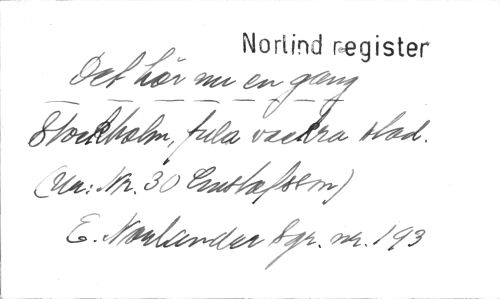 Norlind register
Det här nu en gång
Stockholm, fula vackra stad.
(Ur: Nr. 30 Gustafsson)
E. Norlander Sgr. nr. 193